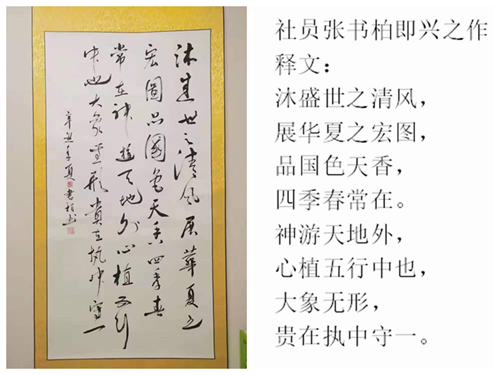 沐盛世之清風展華夏之
宏圖品國色天香四季春
常在神游天地外心植五行
中也大象無形貴在執中守一
辛丑年夏書柏書
社员张书柏即兴之作
释文：
沐盛世之清风，
展华夏之宏图，
品国色天香，
四季春常在。
神游天地外，
心植五行中也，
大象无形，
贵在执中守一。